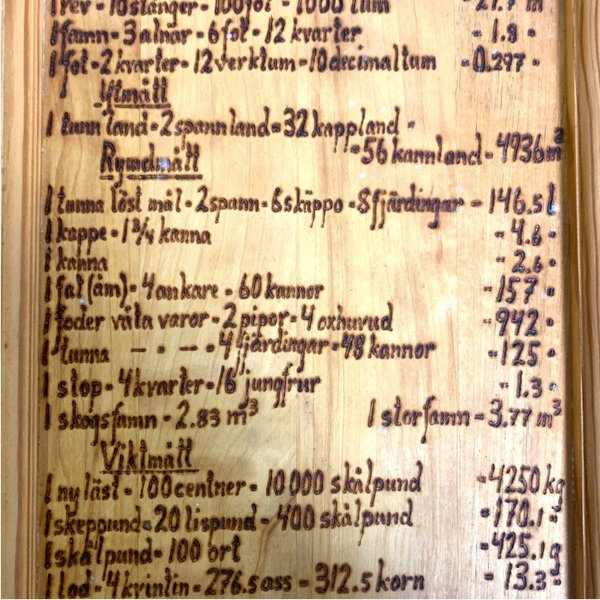 1 rev = 10 stänger = 100 fot = 1000 tum = 29.7 m
1 famn = 3 alnar = 6 fot = 12 kvarter = 1.8 "
1 fot = 2 kvarter = 12 verktum = 10 decimaltum = 0.297 "
Ytmått
1 tunnland = 2 spannland = 32 kappland =
= 56 kannland = 4936 m²
Rymdmått
1 tunna löst mål = 2 spann = 6 skäppo = 8 fjärdingar = 146.5 l
1 kappe = 1 3/4 kanna = 4.6 "
1 kanna = 2.6 "
1 fat (åm) = 4 ankare = 60 kannor = 157 "
1 foder våta varor = 2 pipor = 4 oxhuvud = 942 "
1 tunna — " — " = 4 fjärdingar = 48 kannor = 125 "
1 stop = 4 kvarter = 16 jungfrur = 1.3 "
1 skogsfamn = 2.83 m³ 1 storfamn = 3.77 m³
Viktmått
1 nyläst = 100 centner = 10 000 skålpund = 4250 kg
1 skeppund = 20 lispund = 400 skålpund = 170.1 "
1 skålpund = 100 ort = 425.1 g
1 lod = 4 kvintin = 276.5 ass = 312.5 korn = 13.3 "